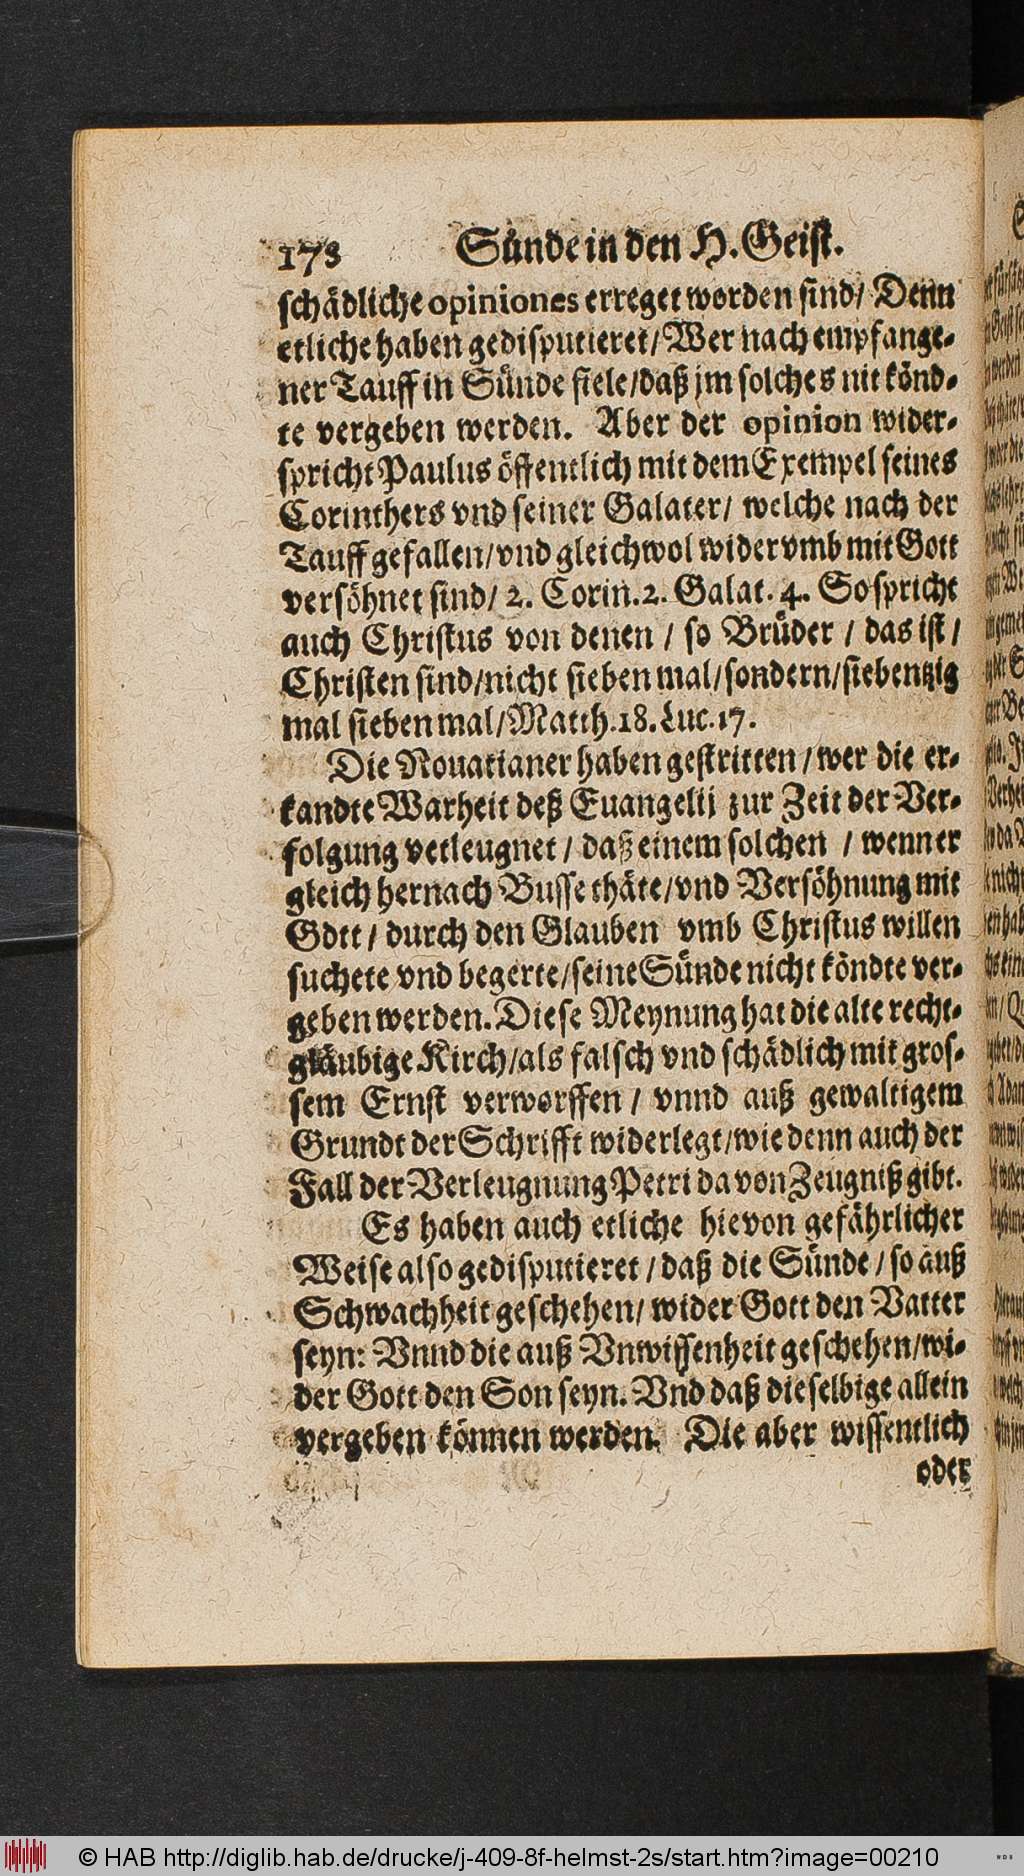 178 Sünde in den H. Geist.
schädliche opiniones erreget worden sind/ Denn
etliche haben gedisputieret/ Wer nach empfange-
ner Tauff in Sünde fiele/ daß jm solches nit könd-
te vergeben werden. Aber der opinion wider-
spricht Paulus öffentlich mit dem Exempel seines
Corinthers vnd seiner Galater/ welche nach der
Tauff gefallen/ vnd gleichwol widervmb mit Gott
versöhnet sind/ 2. Corin. 2. Galat. 4. So spricht
auch Christus von denen / so Brüder / das ist /
Christen sind/ nicht sieben mal/ sondern/ siebentzig
mal sieben mal/ Matth. 18. Luc. 17.
Die Nouatianer haben gestritten / wer die er-
kandte Warheit deß Euangelij zur Zeit der Ver-
folgung verleugnet / daß einem solchen / wenn er
gleich hernach Busse thäte/ vnd Versöhnung mit
Gott / durch den Glauben vmb Christus willen
suchete vnd begerte/ seine Sünde nicht köndte ver-
geben werden. Diese Meynung hat die alte recht-
gläubige Kirch/ als falsch vnd schädlich mit gros-
sem Ernst verworffen / vnnd auß gewaltigem
Grundt der Schrifft widerlegt/ wie denn auch der
Fall der Verleugnung Petri davon Zeugniß gibt.
Es haben auch etliche hievon gefährlicher
Weise also gedisputieret / daß die Sünde / so auß
Schwachheit geschehen/ wider Gott den Vatter
seyn: Vnnd die auß Vnwissenheit geschehen/ wi-
der Gott den Son seyn. Vnd daß dieselbige allein
vergeben können werden. Die aber wissentlich
oder
© HAB http://diglib.hab.de/drucke/j-409-8f-helmst-2s/start.htm?image=00210